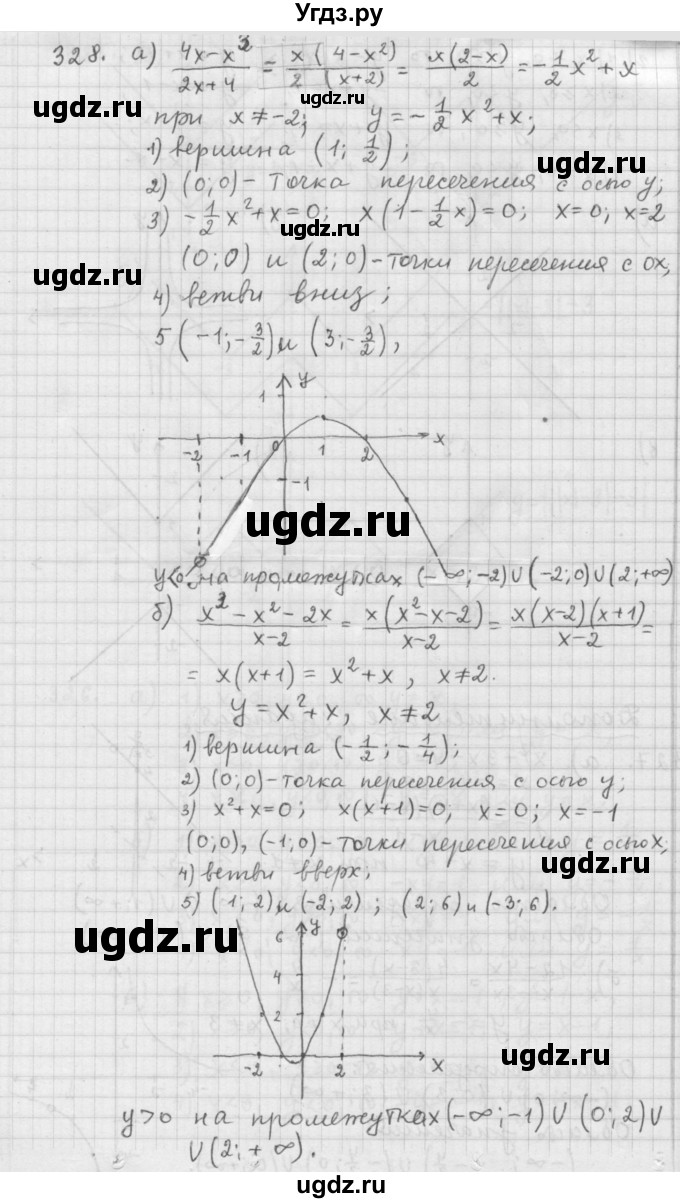 Угдз.ру
328. а) (4x-x³)/(2x+4) = x(4-x²)/2(x+2) = x(2-x)/2 = -1/2x²+x
ugdz.ru ugdz.ru ugdz.ru
при x≠-2; y=-1/2x²+x;
1) вершина (1; 1/2);
2) (0;0)- точка пересечения с осью y;
3) -1/2x²+x=0; x(1-1/2x)=0; x=0; x=2
ugdz.ru
(0;0) и (2;0)-точки пересечения с ox;
ugdz.ru
4) ветви вниз;
5(-1;-3/2) и (3;-3/2),
ugdz.ru ugdz.ru
1 y
-2 -1 0 1 2 x
-1
ugdz.ru
y<0 на промежутках (-∞;-2)∪(-2;0)∪(2;+∞)
б) (x³-x²-2x)/(x-2) = x(x²-x-2)/(x-2) = x(x-2)(x+1)/(x-2) =
= x(x+1) = x²+x, x≠2.
y=x²+x, x≠2
1) вершина (-1/2;-1/4);
2) (0;0)-точка пересечения с осью y;
3) x²+x=0; x(x+1)=0; x=0; x=-1
(0;0), (-1;0)-точки пересечения с осью x;
ugdz.ru
4) ветви вверх;
5) (1;2) и (-2;2); (2;6) и (-3;6).
ugdz.ru ugdz.ru
6 y
4
2
-2 2 x
ugdz.ru
y>0 на промежутках (-∞;-1)∪(0;2)∪
∪(2;+∞).
ugdz.ru